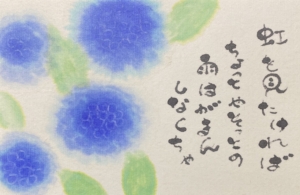 虹を見たければ
ちょっとやそっとの
雨はがまん
しなくちゃ